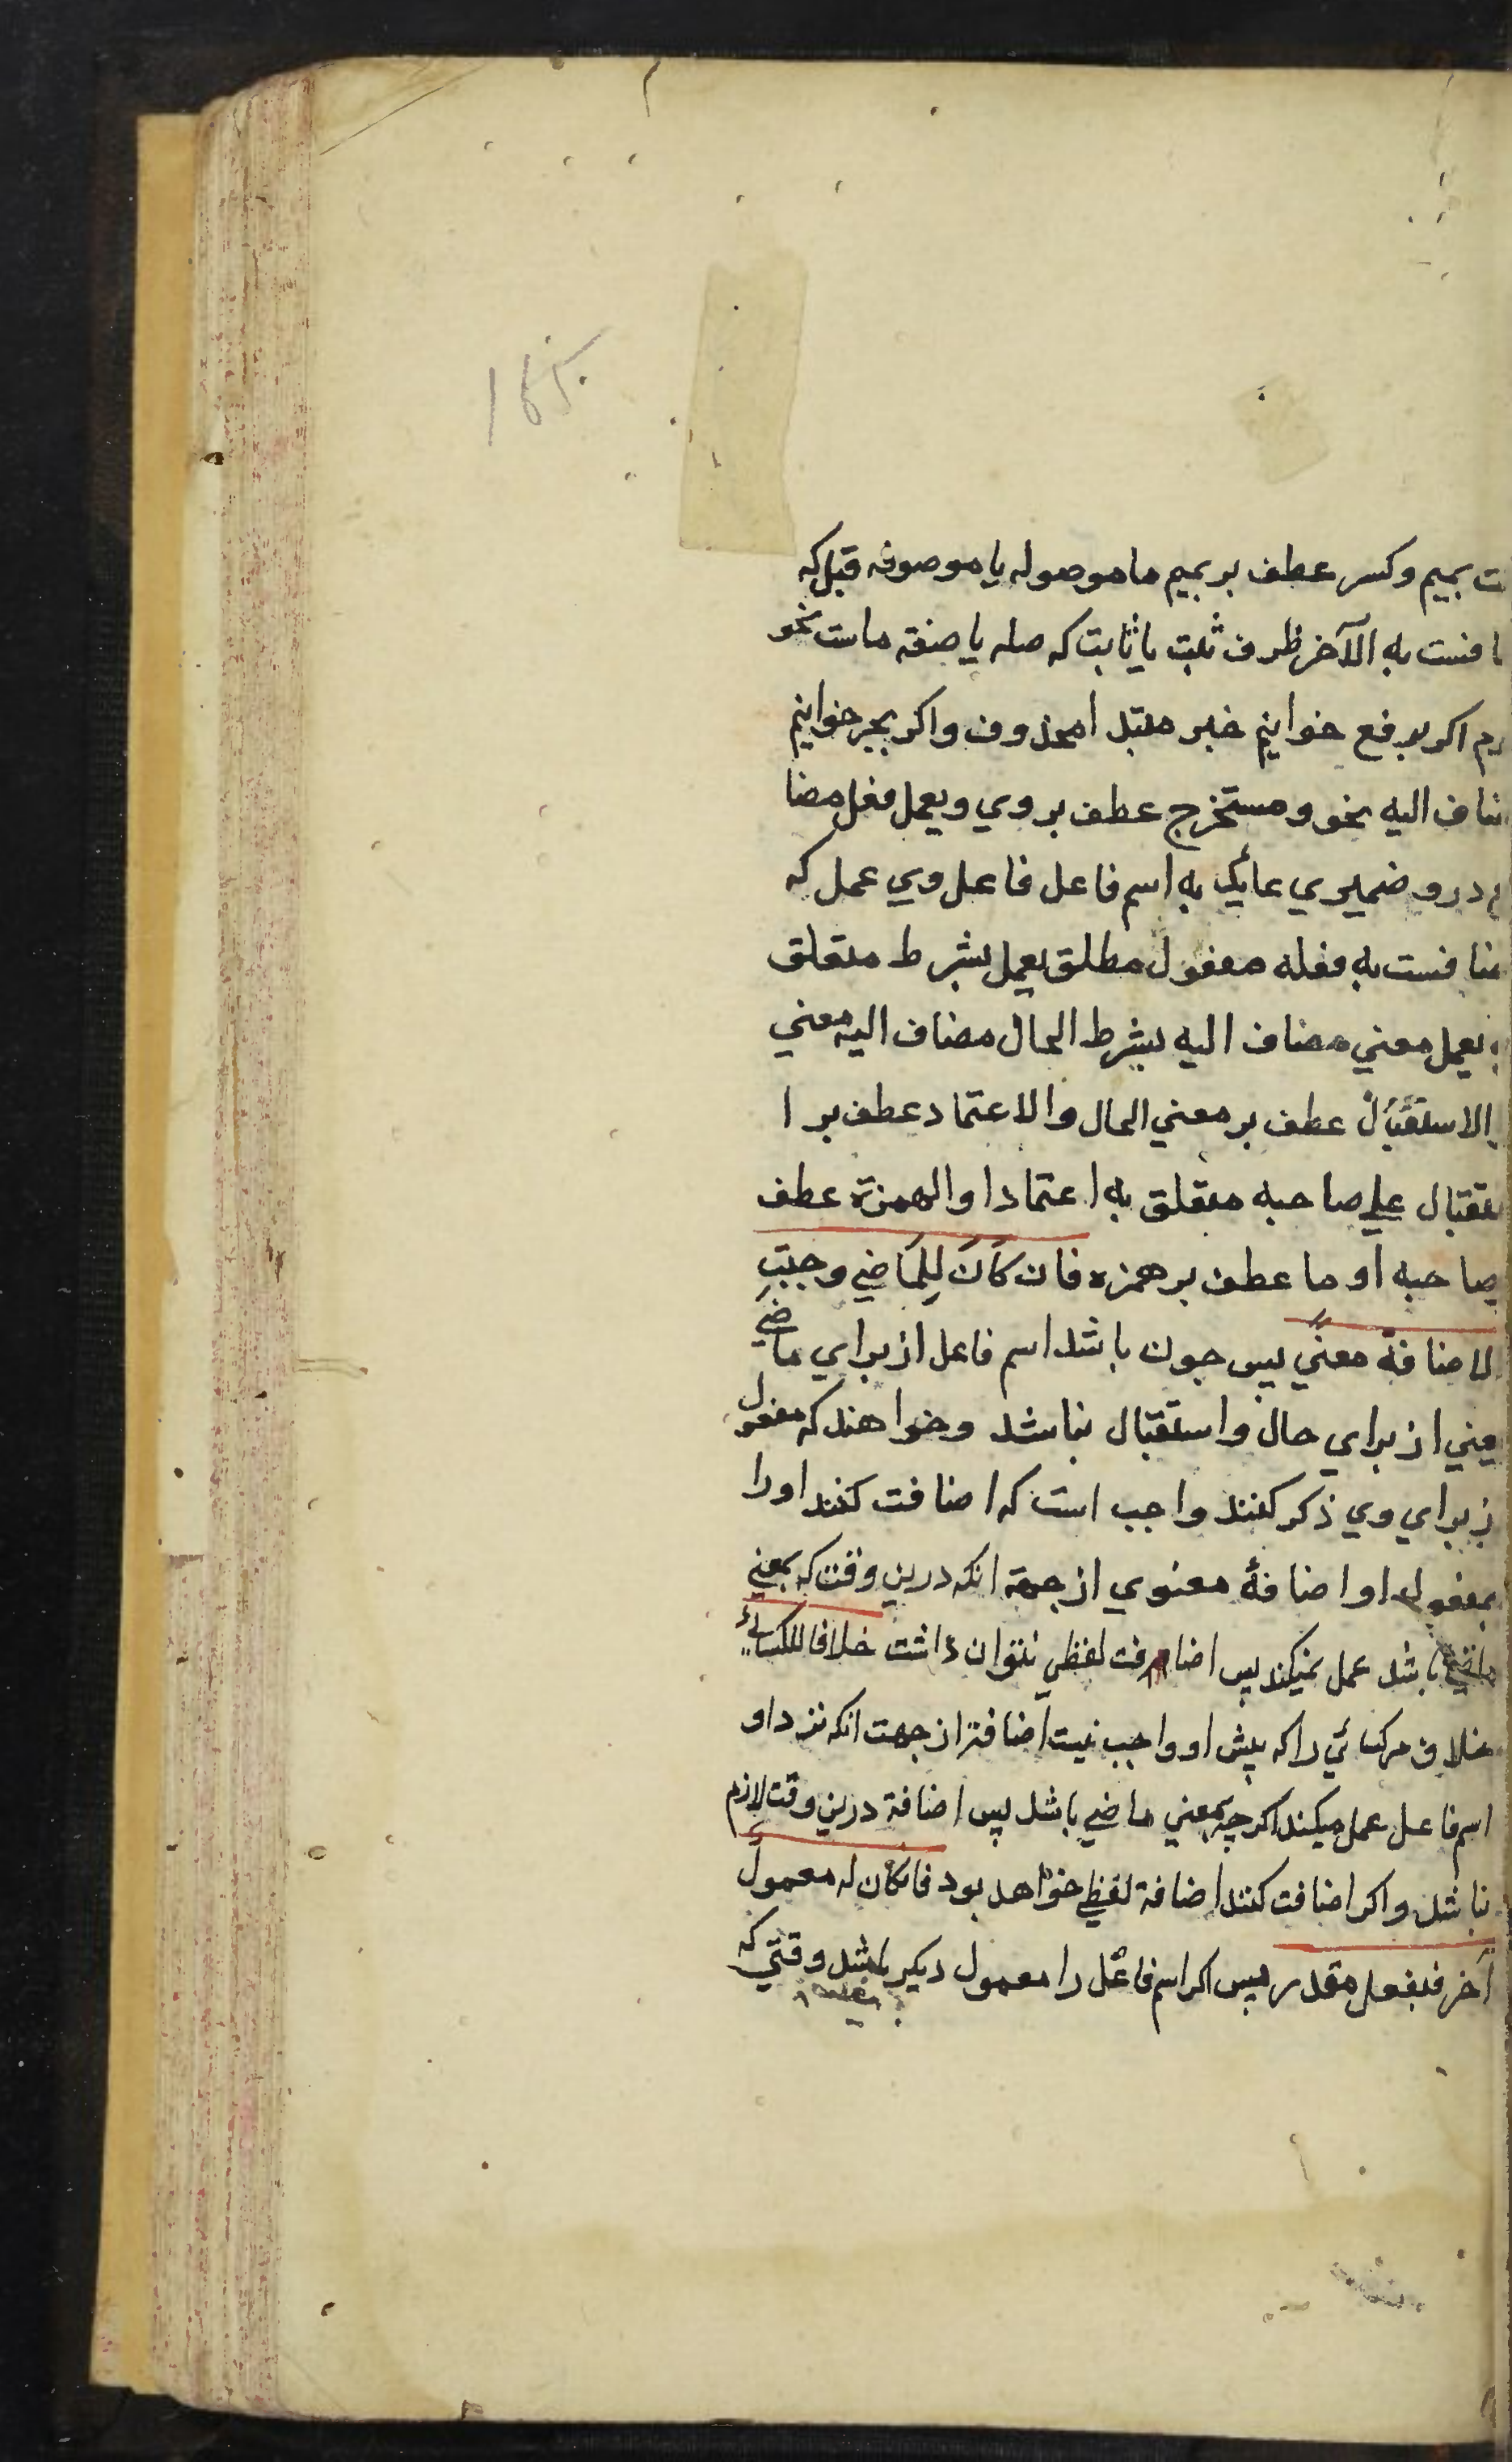 بميم وكسر عطف بر بميم ما موصوله يا موصوفه قبل كه
به الآخر ظرف ثبت يا ثابت كه صله يا صفة ماست نحو
اكر برفع خوانيم خبر مبتدا محذوف واكر بجر خوانيم
اليه نحو ومستخرج عطف بر وي ويعمل فعل مضا
درو ضميري عايد به اسم فاعل فاعل وي عمل كه
به فعله مفعول مطلق يعمل بشرط متعلق
يعمل معني مضاف اليه بشرط الحال مضاف اليه معني
الاستقبال عطف بر معني الحال والاعتماد عطف بر ا
علي صاحبه متعلق به اعتمادا والهمزة عطف
صاحبه او ما عطف بر همزه فان كَانَ لِلمَاضي وجبتِ
الاضافة معنًي پس چون باشد اسم فاعل از براي ماضي
يعني از براي حال واستقبال نباشد وخواهند كه مفعول
از براي وي ذكر كنند واجب است كه اضافت كنند اورا
بمفعول او اضافۀ معنوي از جهة انكه درين وقت كه بمعني
ماضي باشد عمل نميكند پس اضافت لفظي نتوان داشت خلافا للكسائي
خلاف مر كسائي را كه پيش او واجب نيست اضافة از جهت انكه نزد او
اسم فاعل عمل ميكند اكرچه بمعني ماضي باشد پس اضافة درين وقت لازم
نباشد واكر اضافت كنند اضافة لفظي خواهد بود فان كان له معمولٌ
آخر فبفعل مقدر پس اكر اسم فاعل را معمول ديكر باشد وقتي كه